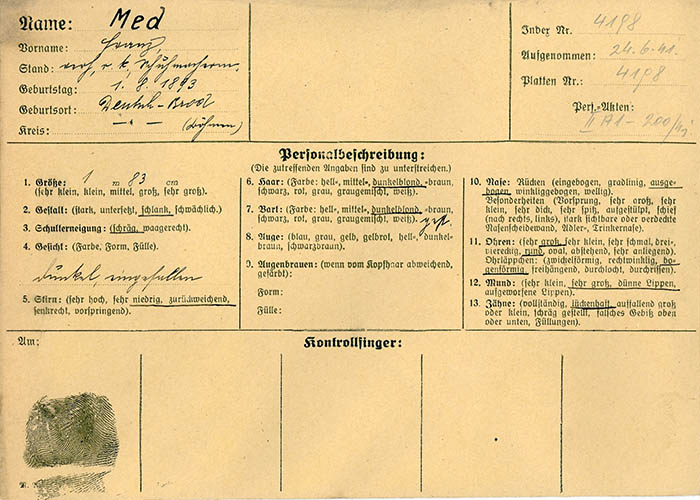 Name: Med
Vorname: Franz,
Stand: verh., r. k., Schuhmacherm.
Geburtstag: 1. 8. 1893
Geburtsort: Deutsch-Brod
Kreis: — " — (Böhmen)
Index Nr. 4198
Aufgenommen: 24.6.41.
Platten Nr.: 4198
Pers.-Akten:
II A1 - 200/41
Personalbeschreibung:
(Die zutreffenden Angaben sind zu unterstreichen.)
1. Größe: 1 m 83 cm
(sehr klein, klein, mittel, groß, sehr groß).
2. Gestalt: (stark, untersetzt, schlank, schwächlich).
3. Schulterneigung: (schräg, waagerecht).
4. Gesicht: (Farbe, Form, Fülle).
dunkel, eingefallen
5. Stirn: (sehr hoch, sehr niedrig, zurückweichend,
senkrecht, vorspringend).
6. Haar: (Farbe: hell-, mittel-, dunkelblond, -braun,
schwarz, rot, grau, graugemischt, weiß).
7. Bart: (Farbe: hell-, mittel-, dunkelblond, -braun,
schwarz, rot, grau, graugemischt, weiß).
8. Auge: (blau, grau, gelb, gelbrot, hell-, dunkel-
braun, schwarzbraun).
9. Augenbrauen: (wenn vom Kopfhaar abweichend,
gefärbt):
Form:
Fülle:
10. Nase: Rücken (eingebogen, gradlinig, ausge-
bogen, winkliggebogen, wellig).
Besonderheiten (Vorsprung, sehr groß, sehr
klein, sehr dick, sehr spitz, aufgestülpt, schief
(nach rechts, links), stark sichtbare oder verdeckte
Nasenscheidewand, Adler-, Trinkernase).
11. Ohren: (sehr groß, sehr klein, sehr schmal, drei-,
viereckig, rund, oval, abstehend, sehr anliegend).
Ohrläppchen: (zwickelförmig, rechtwinklig, bo-
genförmig, freihängend, durchlocht, durchrissen).
12. Mund: (sehr klein, sehr groß, dünne Lippen,
aufgeworfene Lippen).
13. Zähne: (vollständig, lückenhaft, auffallend groß
oder klein, schräg gestellt, falsches Gebiß oben
oder unten, Füllungen).
Am:
Kontrollfinger: